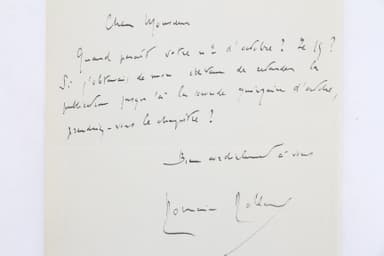 Cher Monsieur
Quand paraît votre n° d'octobre ? Le 15 ?
Si j'obtenais de mon éditeur de retarder la
publication jusqu'à la seconde quinzaine d'octobre,
prendriez-vous le chapitre ?
Bien cordialement à vous
Romain Rolland